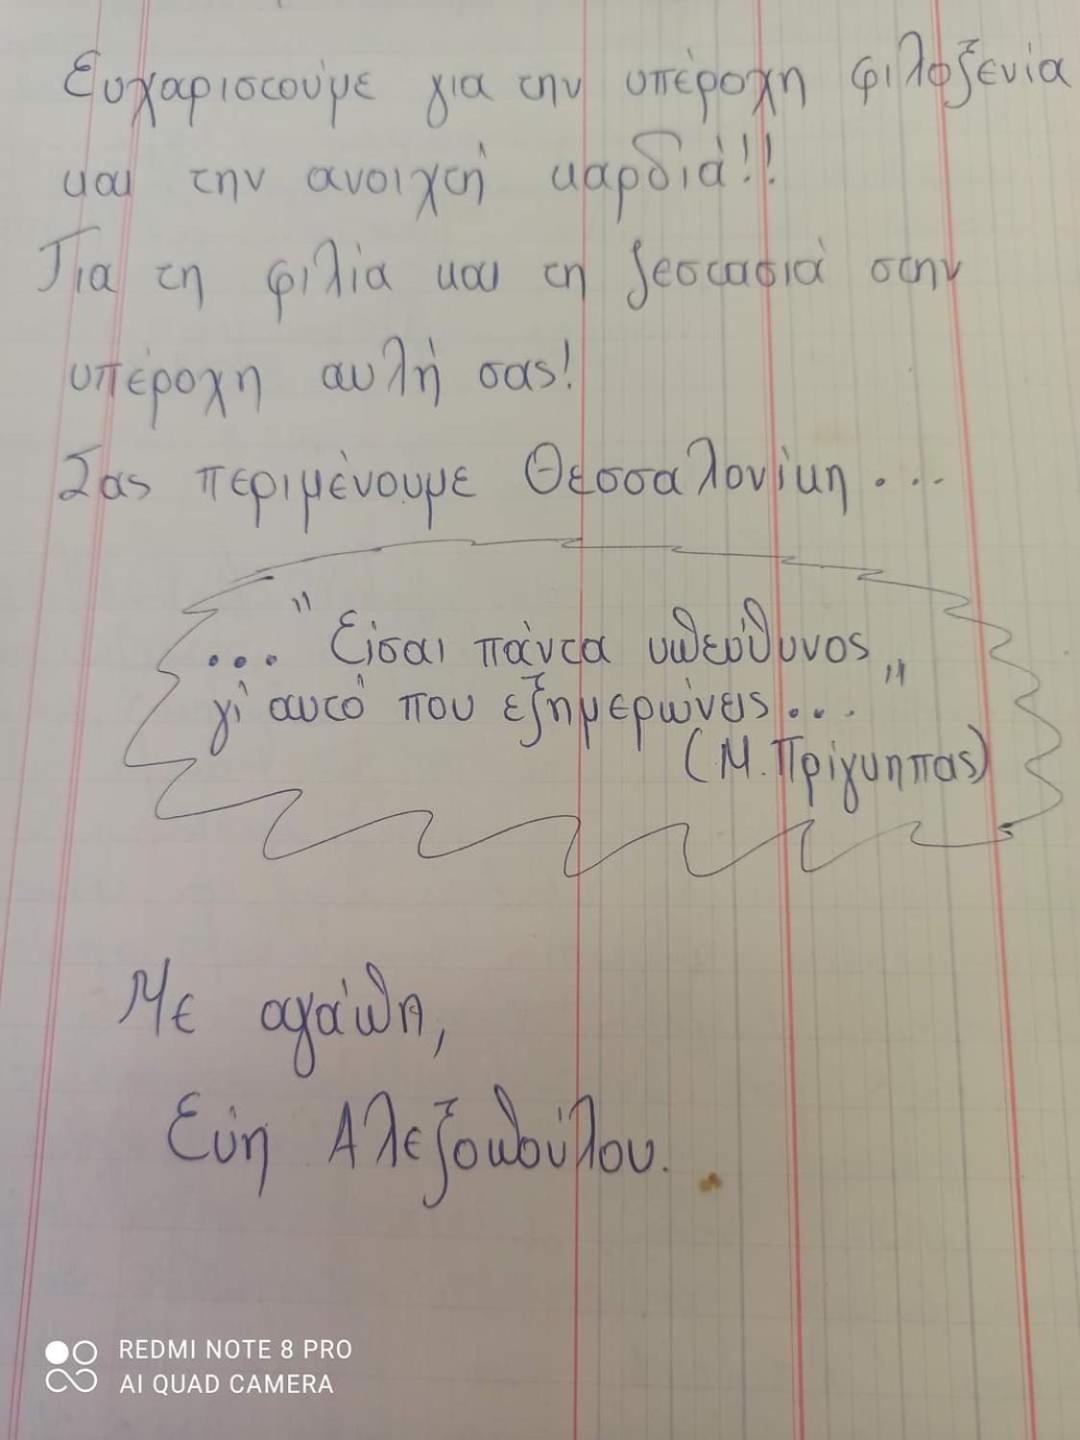 Ευχαριστούμε για την υπέροχη φιλοξενία
και την ανοιχτή καρδιά!!
Για τη φιλία και τη ζεστασιά στην
υπέροχη αυλή σας!
Σας περιμένουμε Θεσσαλονίκη...
..." Είσαι πάντα υπεύθυνος
γι' αυτό που εξημερώνεις..."
(Μ. Πρίγκηπας)
Με αγάπη,
Εύη Αλεξοπούλου.
REDMI NOTE 8 PRO
AI QUAD CAMERA